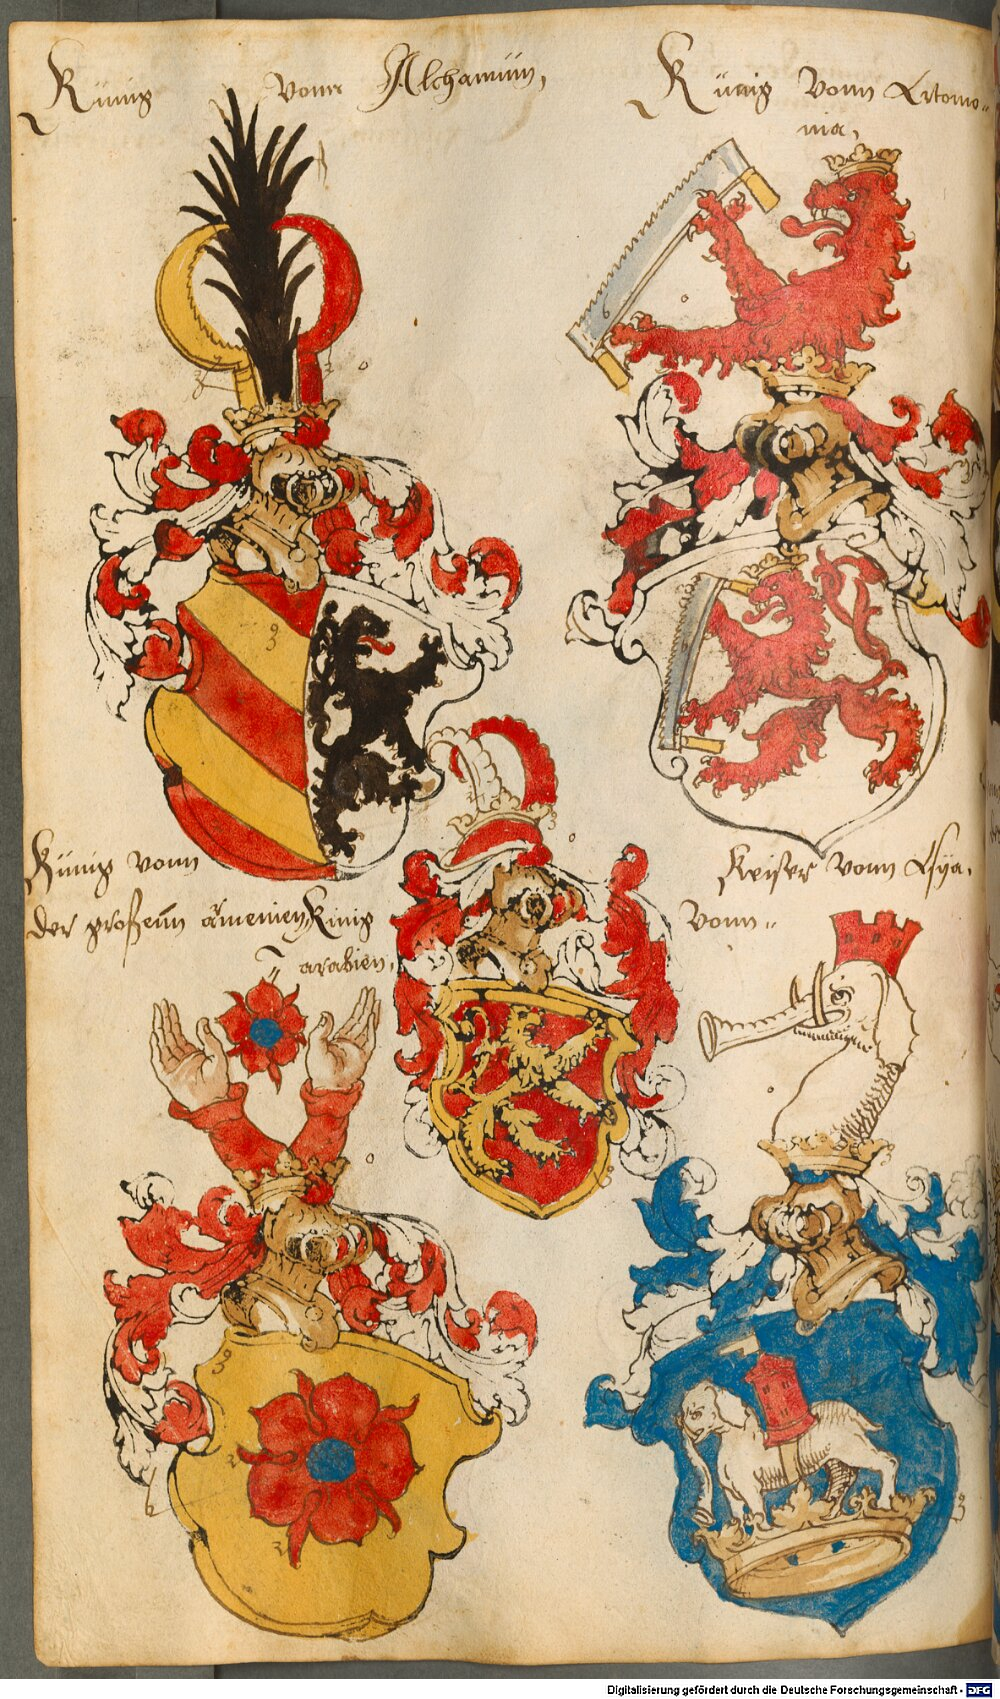 Künig vonn Alchamün,
Künig vonn Litomo=
nia,
Künig vonn
der großenn armenien, Künig
arabien,
Keiser vonn Asya,
vonn=
Digitalisierung gefördert durch die Deutsche Forschungsgemeinschaft - DFG